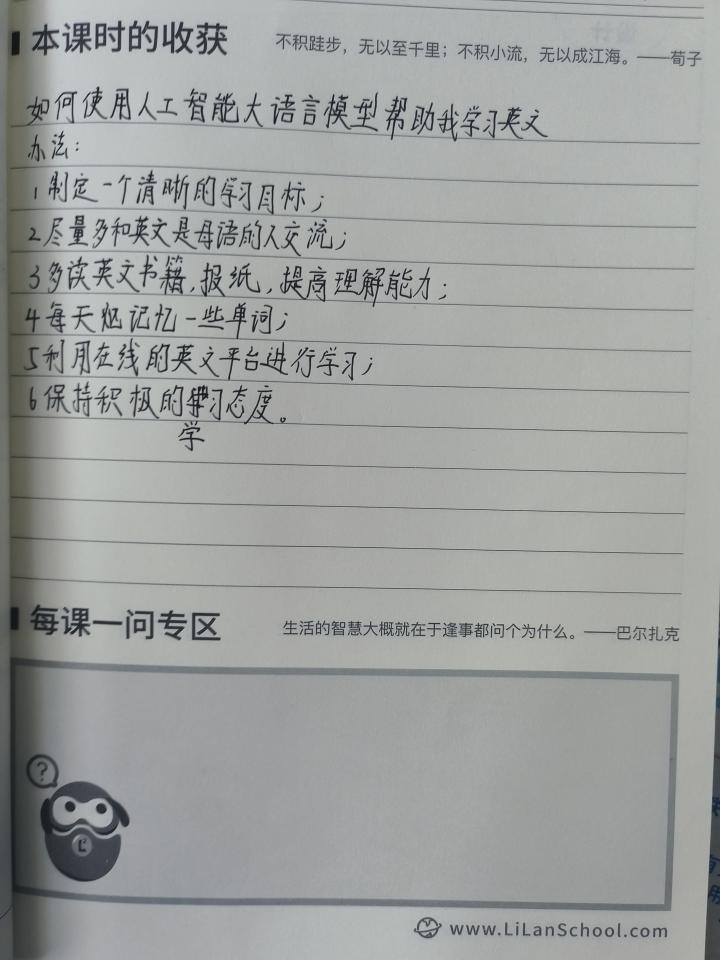 本课时的收获
不积跬步，无以至千里；不积小流，无以成江海。——荀子
如何使用人工智能大语言模型帮助我学习英文
办法：
1 制定一个清晰的学习目标；
2 尽量多和英文是母语的人交流；
3 多读英文书籍，报纸，提高理解能力；
4 每天记忆一些单词；
5 利用在线的英文平台进行学习；
6 保持积极的习态度。
学
每课一问专区
生活的智慧大概就在于逢事都问个为什么。——巴尔扎克
?
www.LiLanSchool.com